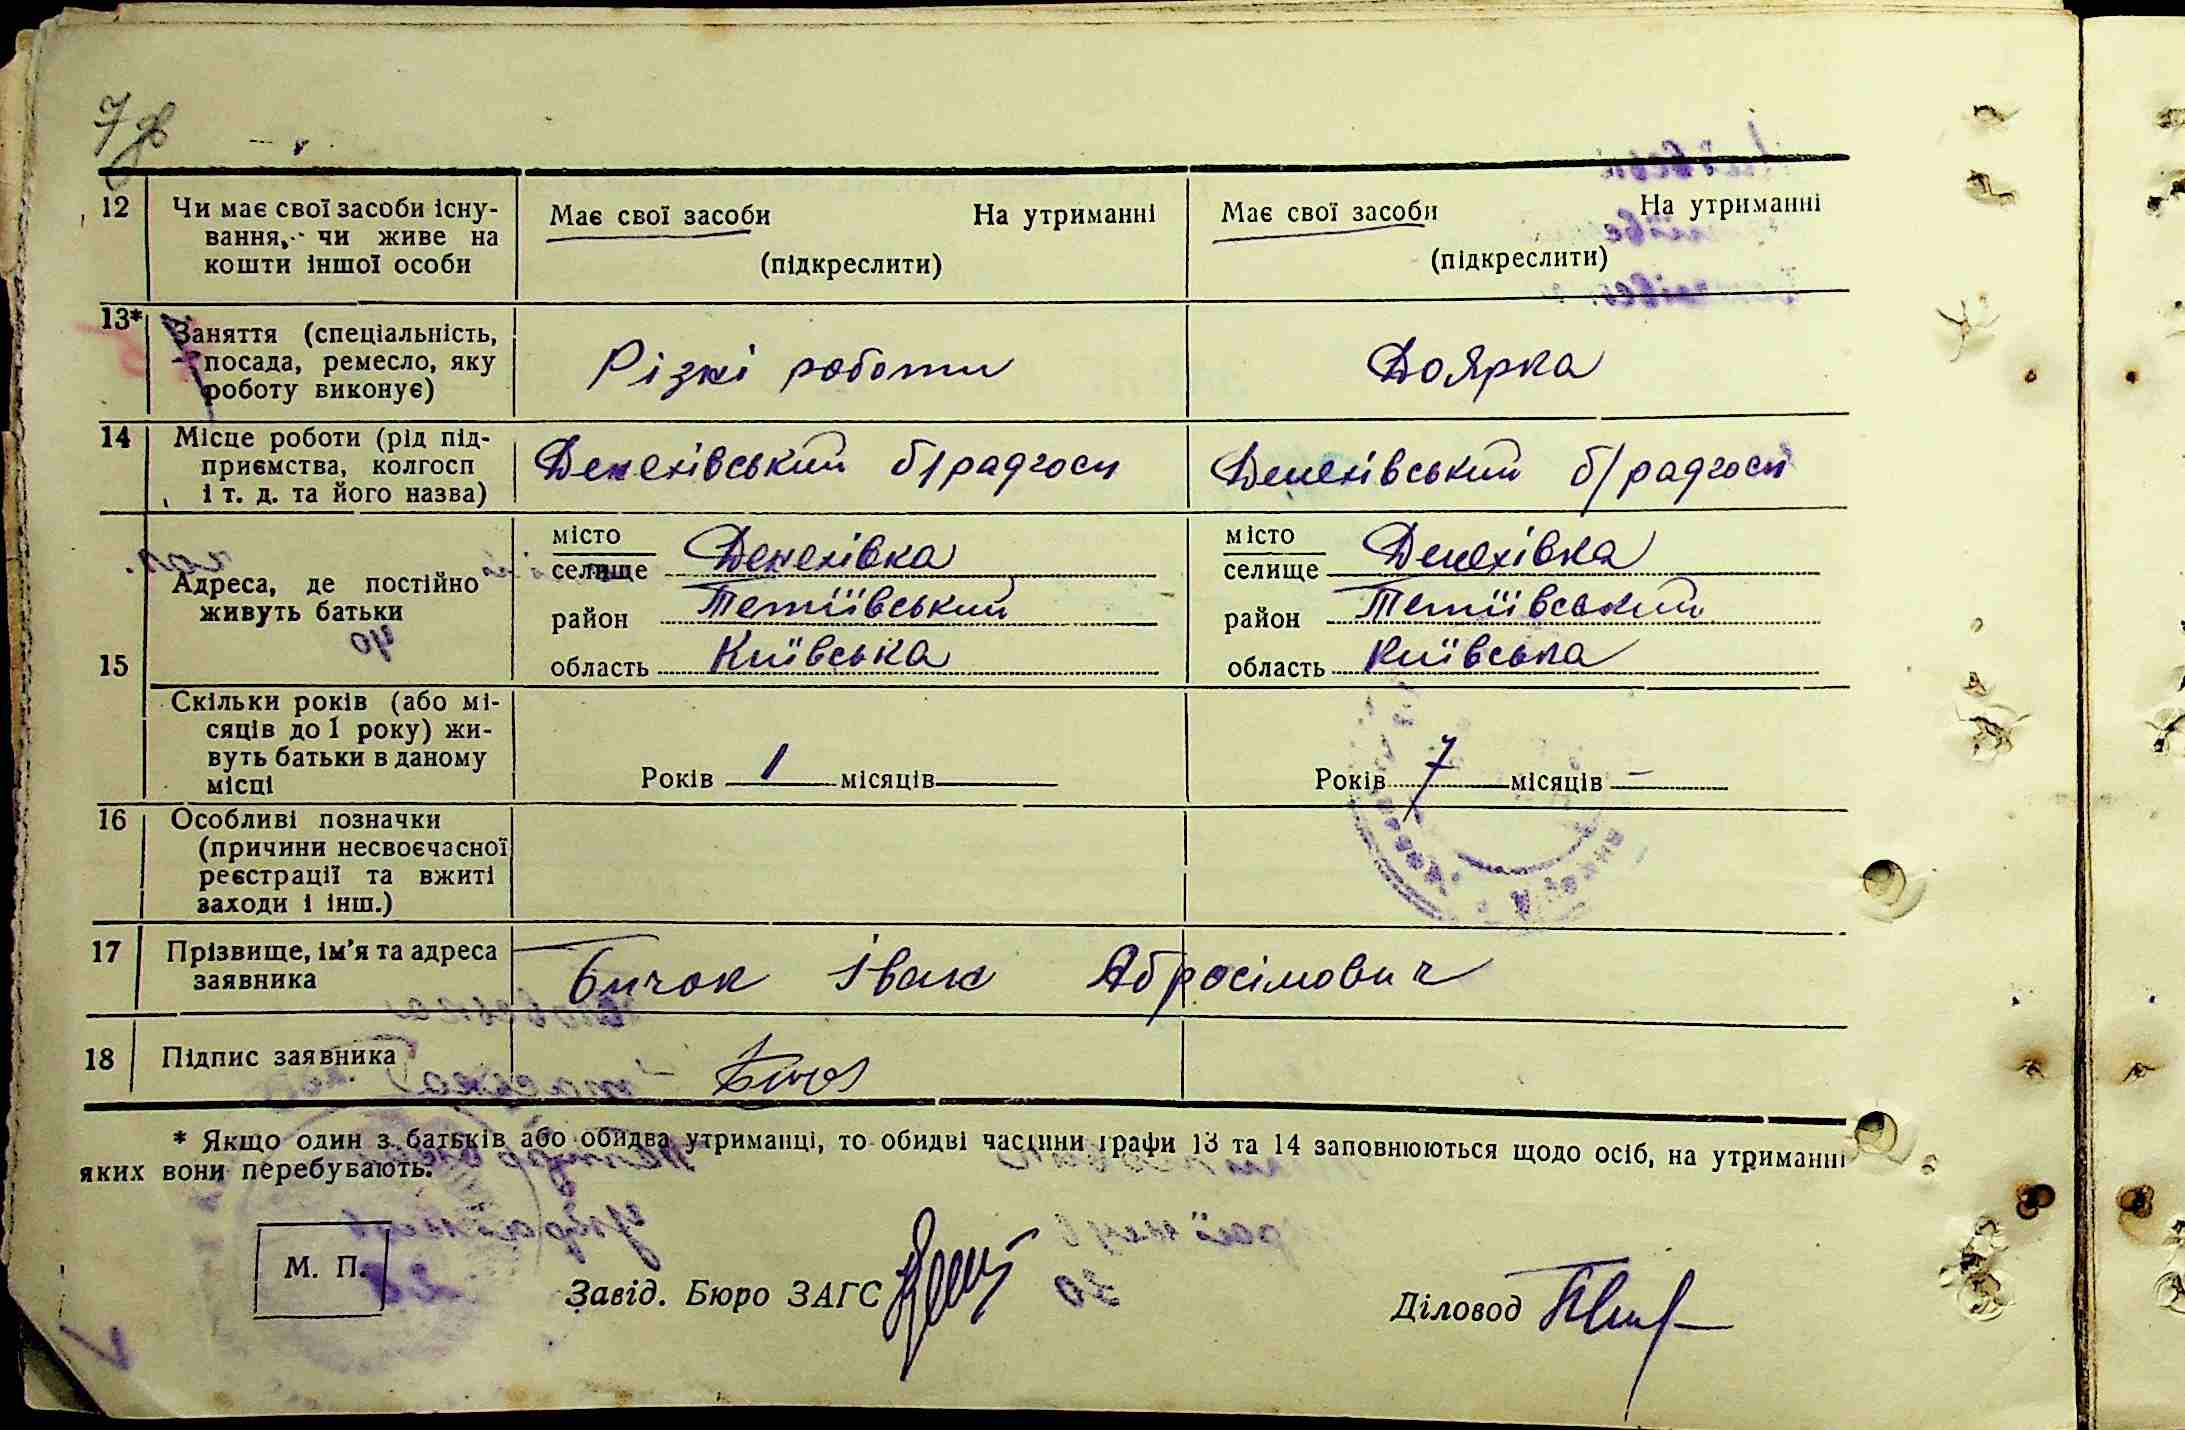 12
Чи має свої засоби існу-
вання, чи живе на
кошти іншої особи
Має свої засоби На утриманні
(підкреслити)
Має свої засоби На утриманні
(підкреслити)
13*
Заняття (спеціальність,
посада, ремесло, яку
роботу виконує)
Різні роботи
Доярка
14
Місце роботи (рід під-
приємства, колгосп
і т. д. та його назва)
Денехівський б/радгосп
Денехівський б/радгосп
15
Адреса, де постійно
живуть батьки
місто
селище Денехівка
район Тетіївський
область Київська
місто
селище Денехівка
район Тетіївський
область Київська
Скільки років (або мі-
сяців до 1 року) жи-
вуть батьки в даному
місці
Років 1 місяців
Років 7 місяців —
16
Особливі позначки
(причини несвоєчасної
реєстрації та вжиті
заходи і інш.)
17
Прізвище, ім'я та адреса
заявника
Бичок Іван Абросімович
18
Підпис заявника
* Якщо один з батьків або обидва утриманці, то обидві частини графи 13 та 14 заповнюються щодо осіб, на утриманні
яких вони перебувають.
М. П.
Завід. Бюро ЗАГС
Діловод